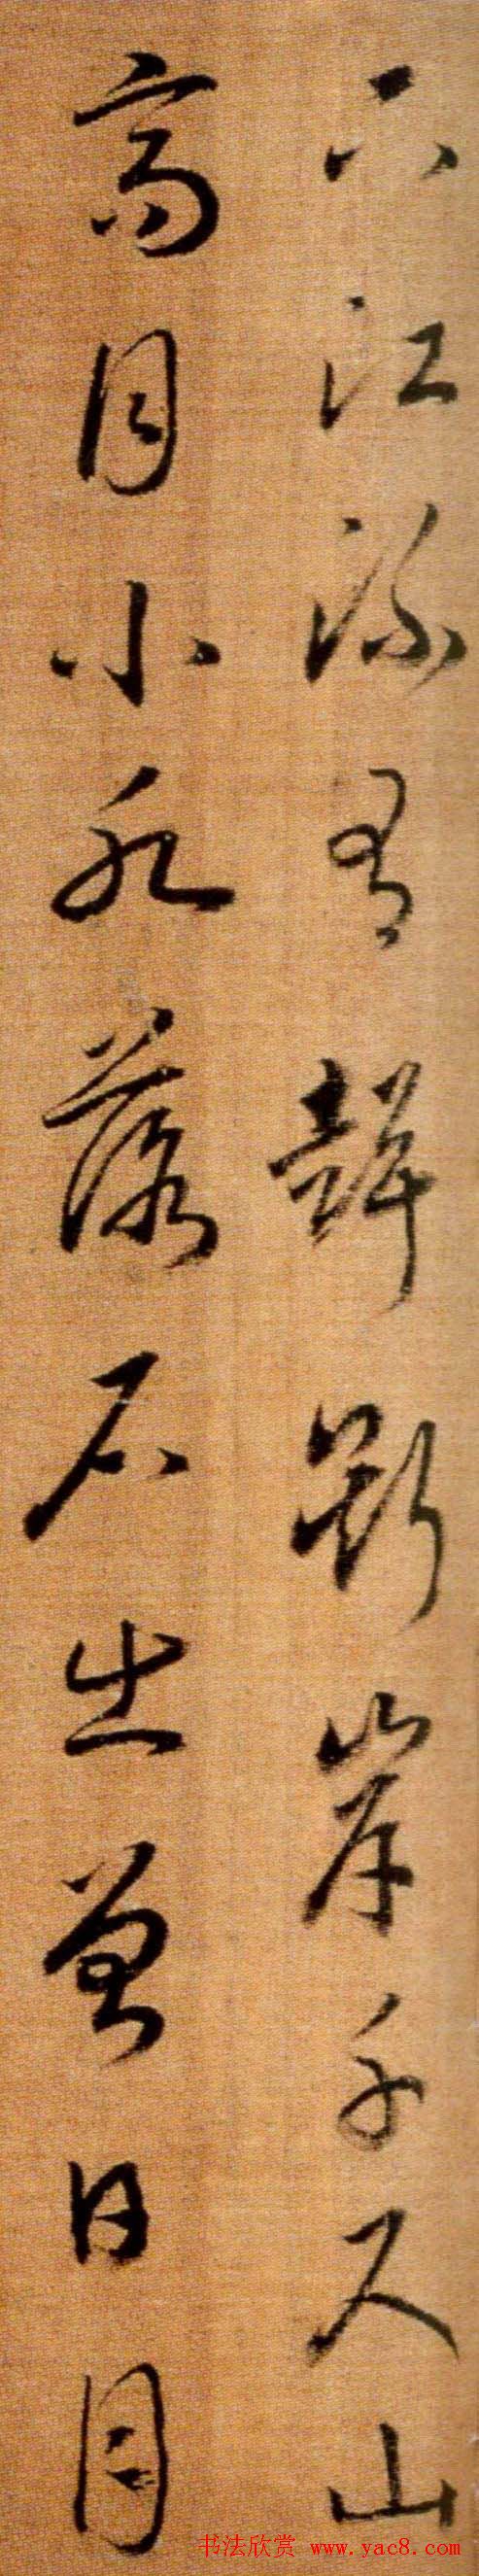 下江流有聲斷岸千尺山
高月小水落石出曾日月
书法欣赏 www.yac8.com